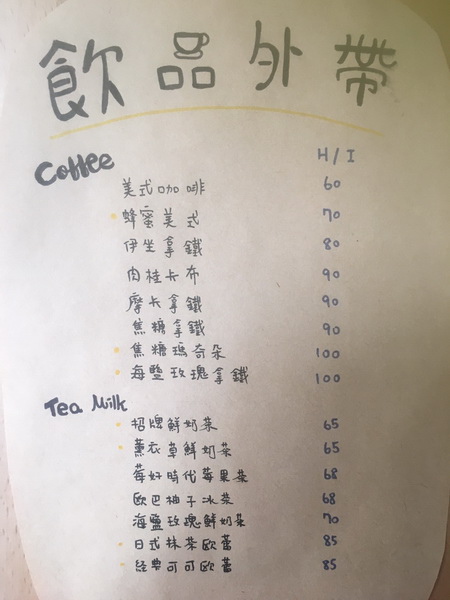 飲品外帶
Coffee H/I
美式咖啡 60
蜂蜜美式 70
伊坐拿鐵 80
肉桂卡布 90
摩卡拿鐵 90
焦糖拿鐵 90
焦糖瑪奇朵 100
海鹽玫瑰拿鐵 100
Tea Milk
招牌鮮奶茶 65
薰衣草鮮奶茶 65
莓好時代莓果茶 68
歐巴柚子冰茶 68
海鹽玫瑰鮮奶茶 70
日式抹茶歐蕾 85
經典可可歐蕾 85